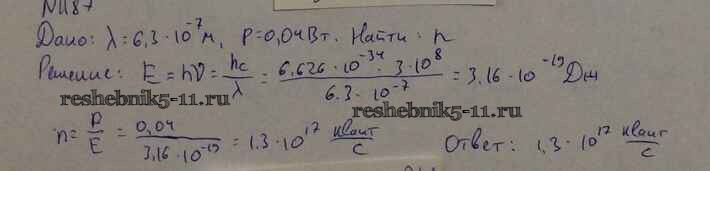 N1187
Дано: λ = 6,3 · 10⁻⁷ м, P = 0,04 Вт. Найти: n
Решение: E = hν = hc/λ = 6.626 · 10⁻³⁴ · 3 · 10⁸ / 6.3 · 10⁻⁷ = 3,16 · 10⁻¹⁹ Дж
reshebnik5-11.ru reshebnik5-11.ru
n = P/E = 0,04 / 3,16 · 10⁻¹⁹ = 1.3 · 10¹⁷ квант/с Ответ: 1,3 · 10¹⁷ квант/с